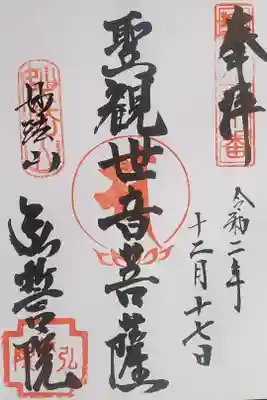 奉拝
令和二年
十二月十七日
聖観世音菩薩
山
弘誓院